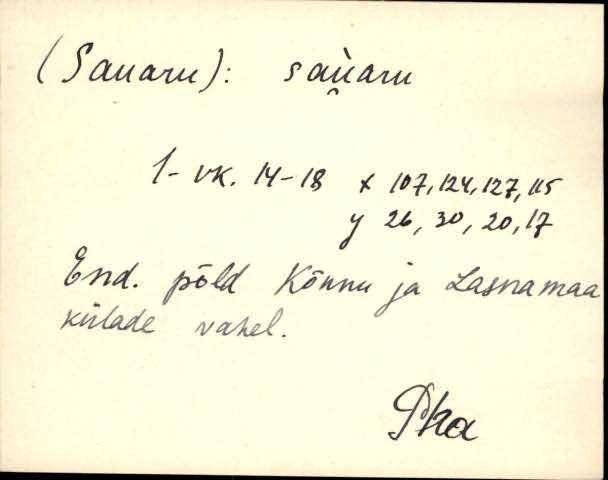 (Sauaru): sau̯aru
1-vk. 14-18 x 107, 124, 127, 115
y 26, 30, 20, 17
End. põld Kõnnu ja Lasnamaa
külade vahel.
Pka